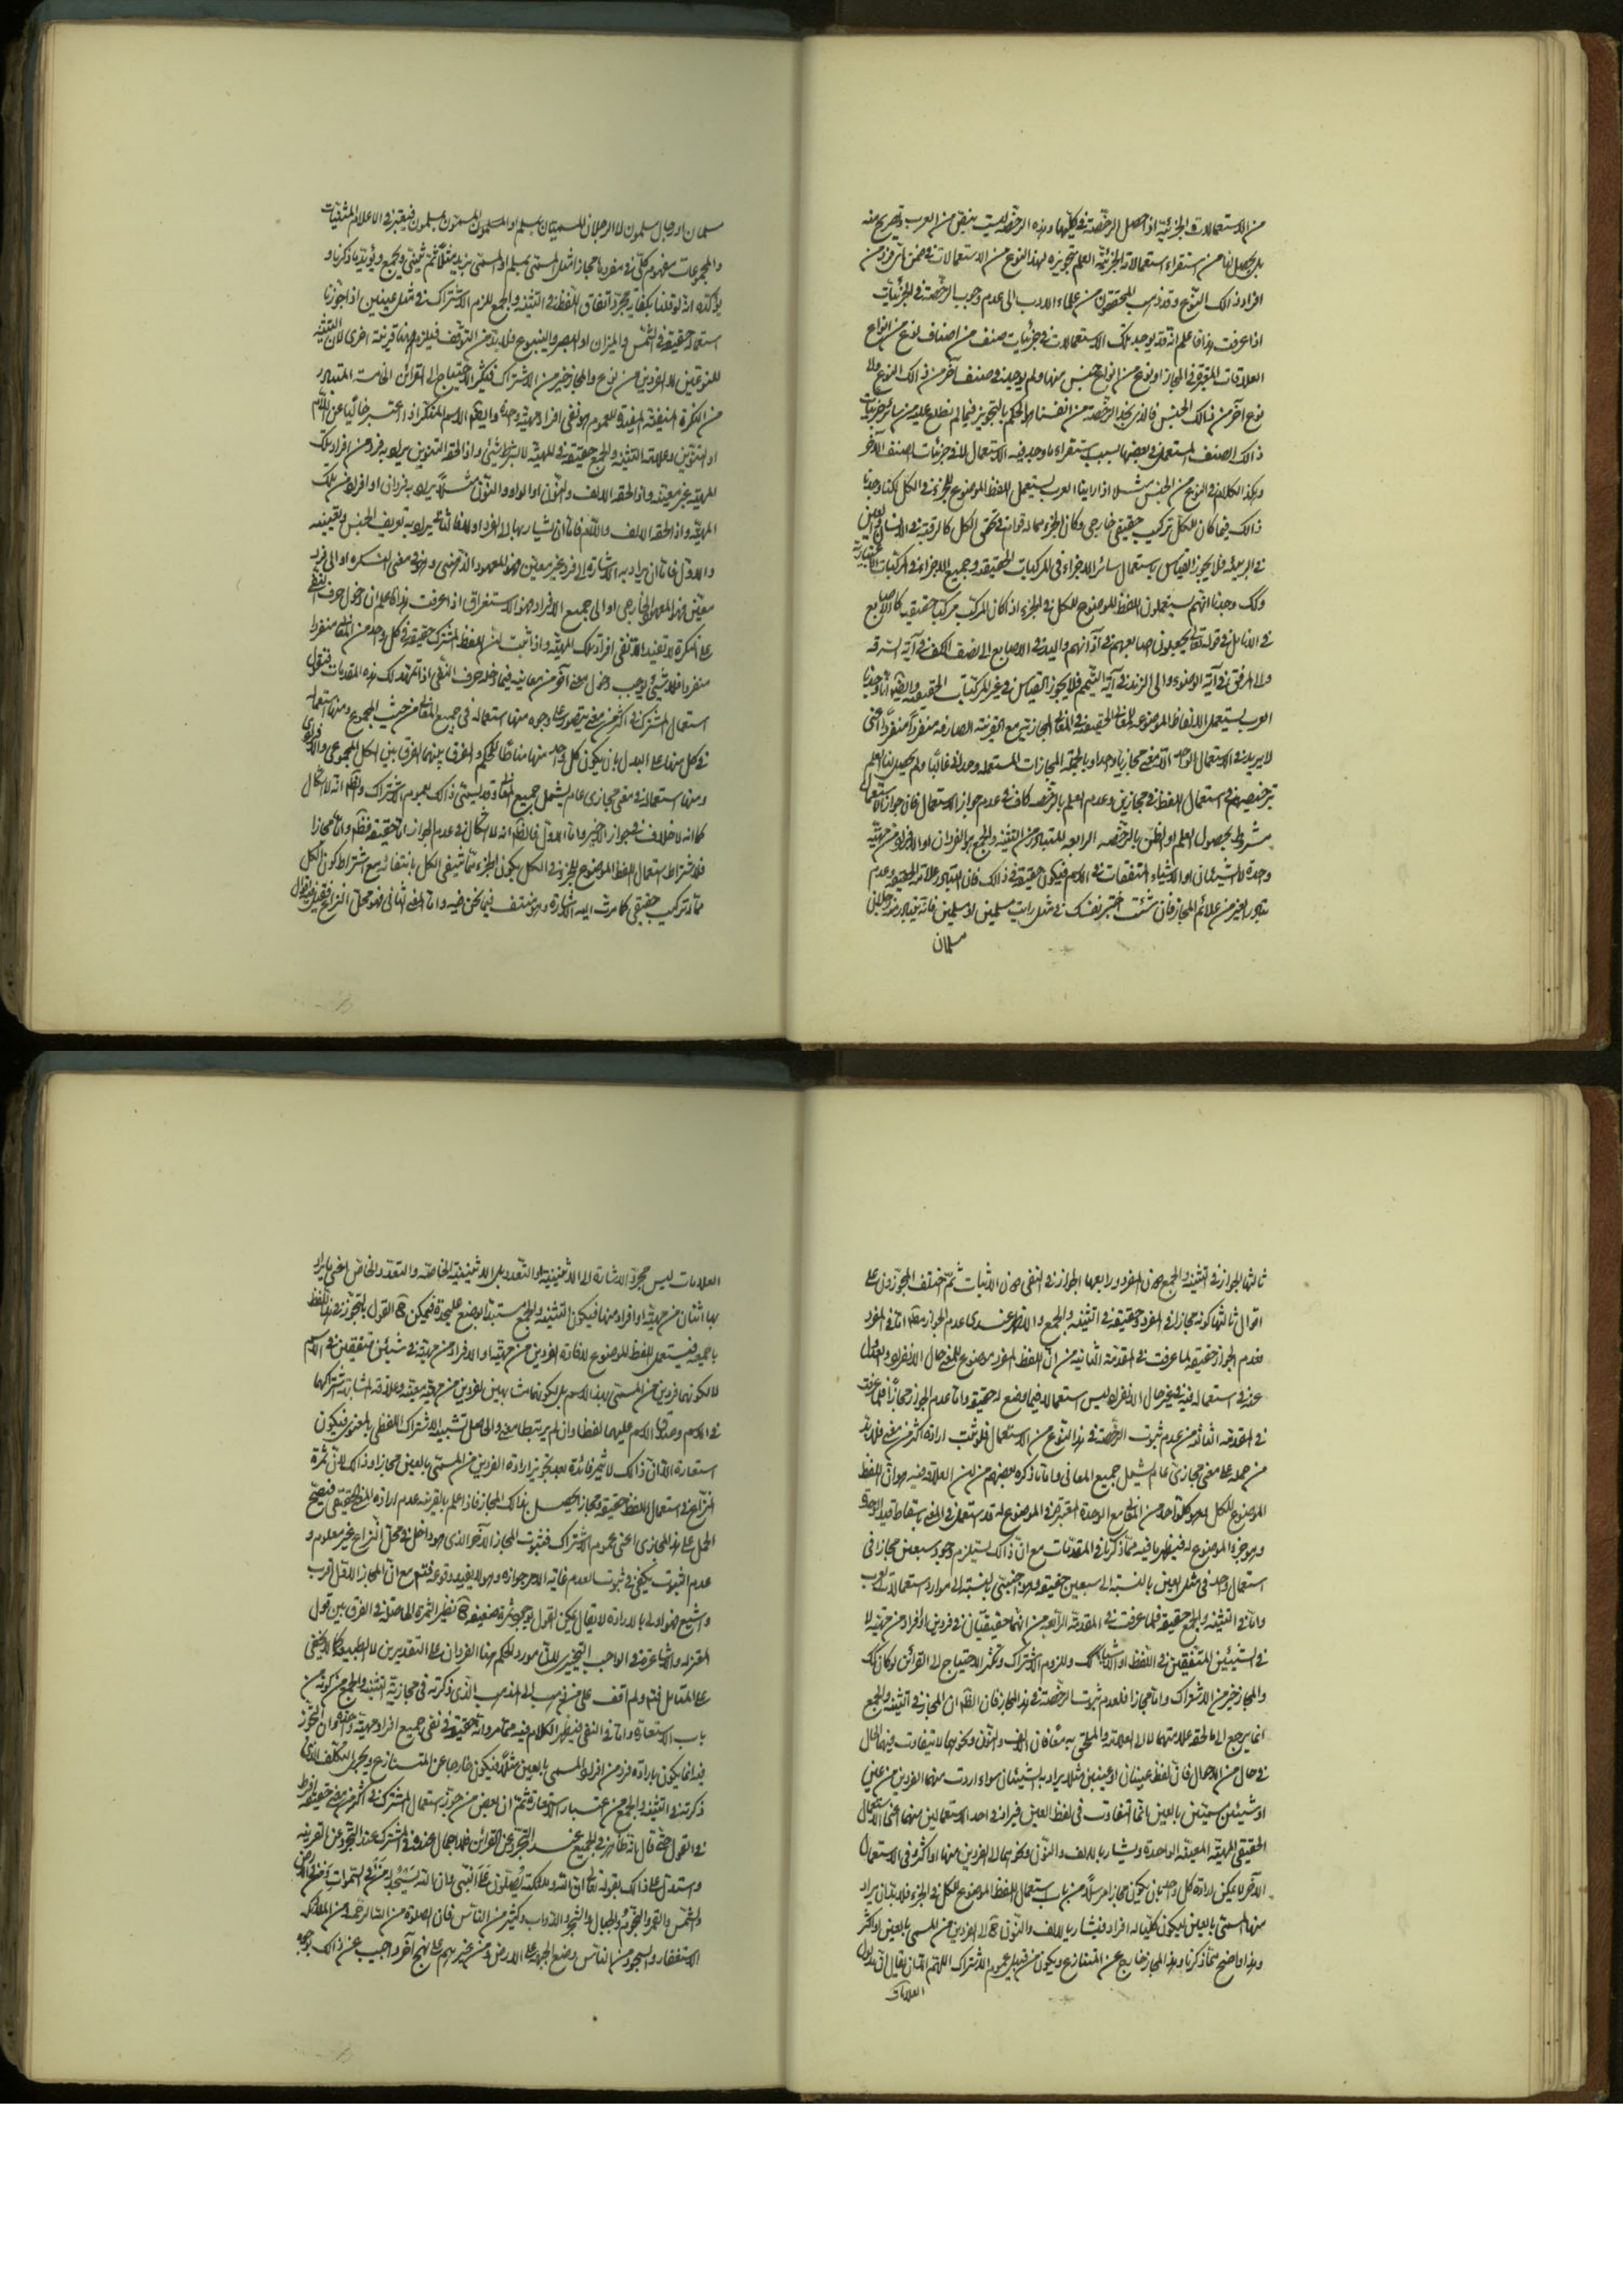 من الاستعمالات الجزئية اذا حصل الرخصة في كليها وهذه الرخصة ليست بنص من العرب وتصريح منه
بل يحصل لنا من استقراء استعمالاته الجزئية العلم بتجويزه لهذا النوع من الاستعمالات في ضمن اى فرد من
افراد ذالك النوع وقد ذهب المحققون من علماء الادب الى عدم وجوب الرخصة في الجزئيات
اذا عرفت هذا فاعلم انه قد يوجد تلك الاستعمالات في جزئيات صنف من اصناف نوع من انواع
العلاقات المعتبرة في المجاز او نوع من انواع جنس منها ولم يوجد في صنف آخر من ذالك النوع ولا
نوع آخر من ذالك الجنس فالذي يجد الرخصة من انفسنا هو الحكم بالتجويز فيما لم نطلع عليه من سائر جزئيات
ذالك الصنف المستعمل في بعضها بسبب استقراء ما وجد فيه الاستعمال لا في جزئيات الصنف الآخر
وهكذا الكلام في النوع من الجنس مثلا اذا راينا العرب يستعمل اللفظ الموضوع للجزء في الكل لكنا وجدنا
ذالك فيما كان للكل تركيب حقيقي خارجي وكان الجزء مما له قوام في تحقق الكل كالرقبة في الانسان والعين
في الربيئة فلا يجوز القياس باستعمال سائر الاجزاء في المركبات الحقيقية وجميع الاجزاء في المركبات الاعتبارية
وكك وجدنا انهم يستعملون اللفظ الموضوع للكل في الجزء اذا كان المركب مركبا حقيقيا كالاصابع
في الانامل في قوله تعالى يجعلون اصابعهم في آذانهم واليد في الاصابع الى نصف الكف في آية السرقة
والى المرفق في آية الوضوء والى الزند في آية التيمم فلا يجوز القياس في غير المركبات الحقيقية وايضا انا وجدنا
العرب يستعمل الالفاظ الموضوعة للمعاني الحقيقية في المعاني المجازية مع القرينة الصارفة منفردا منفردا اعنى
لا يريد في الاستعمال الواحد الا معنى مجازيا واحدا وبالجملة المجازات المستعملة وحدانى غالبا ولم يحصل لنا العلم
بترخيصهم في استعمال اللفظ في مجازين وعدم العلم بالرخصة كاف في عدم جواز الاستعمال فان جواز الاستعمال
مشروط بحصول العلم او الظن بالرخصة الرابعة المتبادر من التثنية والجمع هو الفردان او الافراد من مهية
وحدة لا الشيئان او الاشياء المتفقات في الاسم فيكون حقيقة في ذالك فان التبادر علامة الحقيقة وعدم
تبادر الغير من علائم المجاز فان شئت اختبر نفسك في مثل رايت مسلمين او مسلمين فانه يتبادر منه رجلان
مسلمان
مسلمان او رجال مسلمون لا الرجلان المسميان بمسلم او المسلمون المسمون بمسلمون فيعتبر في الاعلام المثنيات
والمجموعات مفهوم كلي في مفردها مجازا مثل المسمى بمسلم او المسمى بزيد مثلا ثم تثنى وتجمع ويؤيد ما ذكرنا و
يؤكده انه لو قلنا بكفاية مجرد اتفاق اللفظ في التثنية والجمع للزم الاشتراك في مثل عينين اذا جوزنا
استعماله حقيقة في الشمس والميزان او البصر والينبوع فلا بد من التوقف فيلزم هنا قرينة اخرى لان التثنية
للنوعين لا الفردين من نوع والمجاز خير من الاشتراك فيكثر الاحتياج الى القرائن الخامسة المتبادر
من النكرة المنفية المفيدة للعموم هو نفى افراد مهية واحدة وايضا الاسم المنكر اذا اعتبر خاليا عن اللام
او التنوين وعلامة التثنية والجمع حقيقة في المهية لا بشرط شئ واذا لحقه التنوين يراد به فرد من افراد تلك
المهية غير معينة واذا لحقه الالف والنون او الواو والنون مثلا يراد به فردان او افراد من تلك
المهية واذا لحقه الالف واللام فاما ان يشار بها الى الفرد او لا فالثاني يراد به تعريف الجنس وتعيينه
والاول فاما ان يراد به الاشارة الى فرد غير معين فهو المعهود الذهنى وهو في معنى النكرة او الى فرد
معين فهو المعهود الخارجي او الى جميع الافراد فهو الاستغراق اذا عرفت هذا فاعلم ان دخول حرف النفى
على النكرة لا يفيد الا نفى افراد تلك المهية واذا ثبت ان اللفظ المشترك حقيقة في كل واحد من المعاني منفردا
منفردا فلا شئ يوجب دخول معنى آخر من معانيه فيما دخله حرف النفى اذا تمهد لك هذه المقدمات فنقول
استعمال المشترك في اكثر من معنى يتصور على وجوه منها استعماله في جميع المعاني من حيث المجموع ومنها استعماله
في كل منها على البدل بان يكون كل واحد منها مناطا للحكم والفرق بينهما الفرق بين الكل المجموعي والافرادى
ومنها استعماله في معنى مجازى عام يشمل جميع المعاني وقد يسمى ذالك بعموم الاشتراك والظ انه لا اشكال
كما انه لا خلاف في جواز الاخير واما الاول فالظ انه لا اشكال في عدم الجواز اما حقيقة فظ واما مجازا
فلاشتراط استعمال اللفظ الموضوع للجزء في الكل بكون الجزء مما ينتفى الكل بانتفائه مع اشتراط كون الكل
مما له تركب حقيقي كما مرت اليه الاشارة وهو منتف فيما نحن فيه واما المعنى الثاني فهو محل النزاع فقيل فيه اقوال
ثالثها الجواز في التثنية والجمع دون المفرد ورابعها الجواز في النفى دون الاثبات ثم اختلف المجوزون على
اقوال ثالثها كونه مجازا في المفرد وحقيقة في التثنية والجمع والاظهر عندى عدم الجواز مط اما في المفرد
فعدم الجواز حقيقة لما عرفت في المقدمة الثانية من ان اللفظ المفرد موضوع للمعنى حال الانفراد والعدول
عنه في استعماله فيه في غير حال الانفراد ليس استعمالا فيما وضع له حقيقة واما عدم الجواز مجازا فلما عرفت
في المقدمة الثالثة من عدم ثبوت الرخصة في هذا النوع من الاستعمال فلو ثبت ارادة اكثر من معنى فلا بد
من حمله على معنى مجازى عام يشمل جميع المعاني واما ما ذكره بعضهم من ان العلاقة فيه هو ان اللفظ
الموضوع للكل وهو كل واحد من المعاني مع الوحدة المعتبرة في الموضوع له قد استعمل في المعنى باسقاط قيد الوحدة
وهو جزء الموضوع له فيظهر ما فيه مما ذكرنا في المقدمات مع ان ذالك يستلزم وجود سبعين مجازا في
استعمال واحد في مثل العين بالنسبة الى سبعين حقيقة وهو اجنبى بالنسبة الى موارد استعمالات العرب
واما في التثنية والجمع حقيقة فلما عرفت في المقدمة الرابعة من انهما حقيقتان في فردين او افراد من مهية لا
في الشيئين المتفقين في اللفظ او الاشياء كك وللزوم الاشتراك وتكثر الاحتياج الى القرائن لو كان كك
والمجاز خير من الاشتراك واما مجازا فلعدم ثبوت الرخصة في هذا المجاز فان الظ ان المجاز في التثنية والجمع
انما يرجع الى ما لحقه علامتهما لا الى العلامة والملحق به معا فان الالف والنون ونحوهما لا يتفاوت فيهما الحال
في حال من الاحوال فان لفظ عينان او عينين مثلا يراد به الشيئان سواء اردت منهما الفردين من عين
او شيئين مسميين بالعين انما التفاوت في لفظ العين فيراد في احد الاستعمالين منهما اعنى الاستعمال
الحقيقي المهية المعينة الواحدة ويشار بالالف والنون ونحوهما الى الفردين منها او اكثر وفي الاستعمال
الآخر لا يمكن ارادة كل واحد بان يكون مجازا مرسلا من باب استعمال اللفظ الموضوع للكل في الجزء فلا بد ان يراد
منها المسمى بالعين ليكون كليا له افراد فيشار بالالف والنون ح الى الفردين من المسمى بالعين او اكثر
وهذا واضح مما ذكرنا وهذا المجاز خارج عن المتنازع ويكون من قبيل عموم الاشتراك اللهم الا ان يقال ان مدلول
العلامات
العلامات ليس مجرد الاشارة الى الاثنينية او التعدد بل الاثنينية الخاصة والتعدد الخاص اعنى يراد
بها اثنان من مهية او افراد منها فيكون التثنية والجمع مستبدا بوضع عليحدة فيمكن ح القول بالتجوز في هذا اللفظ
بالمجموع فيستعمل اللفظ الموضوع لافادة الفردين من مهية او الافراد من مهية في شيئين متفقين في الاسم
لا لكونهما فردين من المسمى بهذا الاسم بل لكونهما مشابهين لفردين من مهية معينة وعلاقة المشابهة اشتراكهما
في الاسم وصدق الاسم عليهما لفظا وان لم يرتبطا معنى والحاصل تشبيه الاشتراك اللفظى بالمعنوى فيكون
استعارة الا ان ذالك لا يثمر فائدة بعد تجويز ارادة الفردين من المسمى بالعين مجازا وذالك لان ثمرة
النزاع في استعمال اللفظ حقيقة ومجازا يحصل بذالك المجاز فاذا علم بالقرينة عدم ارادة المعنى الحقيقي فيصح
الحمل على هذا المجازى اعنى عموم الاشتراك فثبوت المجاز الآخر الذى هو داخل في محل النزاع غير معلوم و
عدم الثبوت يكفى في ثبوت العدم غاية الامر جوازه وهو لا يفيد وقوعه فتم مع ان المجاز الاول اقرب
واشيع فهو اولى بالارادة لا يقال يمكن القول بوجود ثمرة ضعيفة ح نظير الثمرة الحاصلة في الفرق بين قول
المعتزلة والاشاعرة في الواجب التخييرى لان مورد الحكم هنا الفردان على التقديرين لا الطبيعة كما لا يخفى
على المتامل فتم ولم اقف على من ذهب الى المذهب الذى ذكرته في مجازية التثنية والجمع من كونه من
باب الاستعارة واما في النفى فيظهر الكلام فيه مما مر وانه حقيقة في نفى جميع افراد مهية واحدة وان التجوز
فيه انما يكون بارادة فرد من افراد المسمى بالعين مثلا فيكون خارجا عن المتنازع ويجرى التكلف الذى
ذكرته في التثنية والجمع من اعتبار الاستعارة ثم ان بعض من جوز استعمال المشترك في اكثر من معنى حقيقة افرط
في القول حتى قال بانه ظاهر في الجميع عند التجرد عن القرائن فلا اجمال عنده في المشترك عند التجرد عن القرينة
واستدل على ذالك بقوله تعالى ان الله وملائكته يصلون على النبى وان الله يسجد له من في السموات ومن في الارض
والشمس والقمر والنجوم والجبال والشجر والدواب وكثير من الناس فان الصلوة من الله الرحمة ومن الملائكة
الاستغفار والسجود من الناس وضع الجبهة على الارض ومن غيرهم على نهج آخر واجيب عن ذالك بوجوه